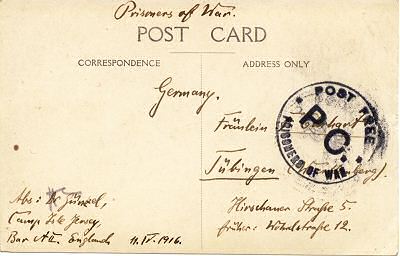 Prisoners of War.
POST CARD
CORRESPONDENCE
ADDRESS ONLY
Germany.
POST FREE
P.C.
PRISONERS OF WAR.
Fräulein
Tübingen
Hirschauer Straße 5
früher: 12.
Abs: Dr.
Camp Isle Jersey,
England 11. IV. 1916.